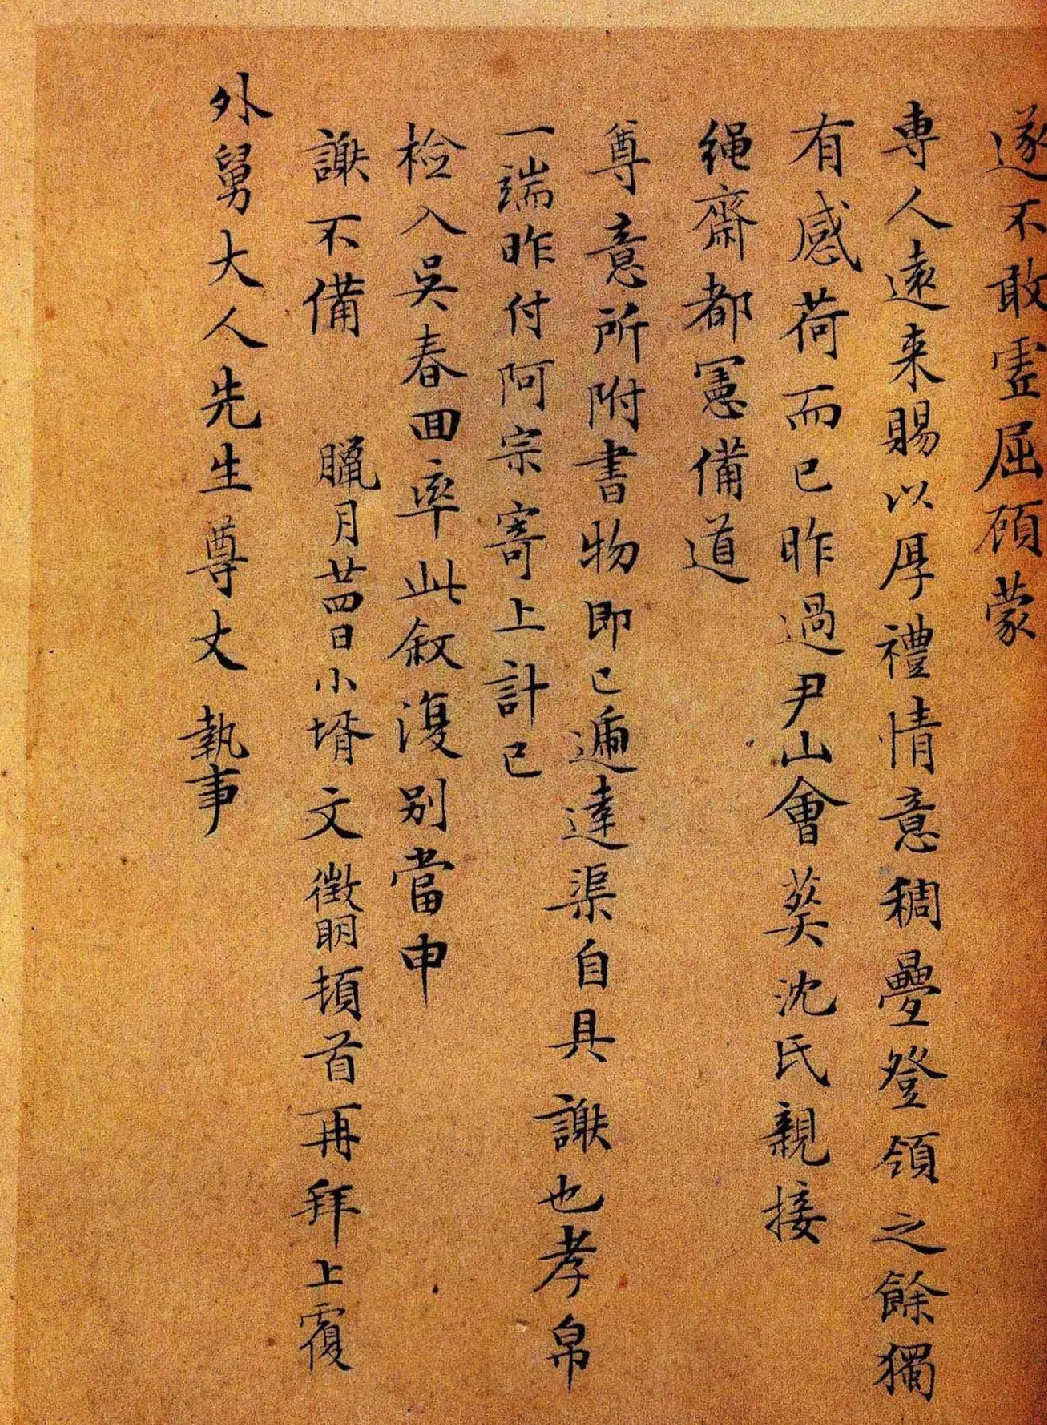 遂不敢虚屈顧蒙
專人遠来賜以厚禮情意稠疊登領之餘獨
有感荷而已昨過尹山會葬沈氏親接
繩齋都憲備道
尊意所附書物即已遞達渠自具謝也孝帛
一端昨付阿宗寄上計已
檢入吳春回率此叙復別當申
謝不備 臘月廿四日小壻文徵明頓首再拜上覆
外舅大人先生尊丈執事